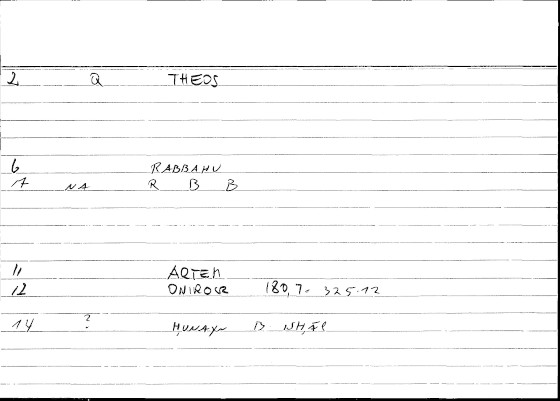 2 Q THEOS
6 RABBAHU
7 NA R B B
11 ARTEM
12 ONIROCR 180,7- 325.12
14 ? ḤUNAYN B ISḤĀQ